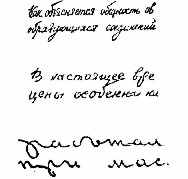 Как объясняется общность об
образующихся соединений
В настоящее вре
цены особенно ни
работал
при мас.